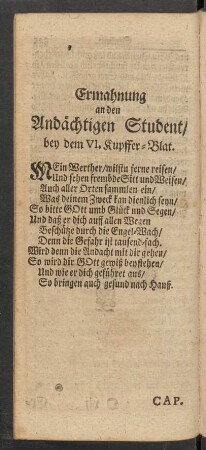 Ermahnung
an den
Andächtigen Student/
bey dem VI. Kupffer-Blat.
MEin Werther/wilstu ferne reisen/
Und sehen frembde Sitt und Weisen/
Auch aller Orten sammlen ein/
Was deinem Zweck kan dienlich seyn/
So bitte GOtt umb Glück und Segen/
Und daß er dich auff allen Wegen
Beschütze durch die Engel-Wach/
Denn die Gefahr ist tausend-fach.
Wird denn die Andacht mit dir gehen/
So wird dir GOtt gewiß beystehen/
Und wie er dich geführet aus/
So bringen auch gesund nach Hauß.
CAP.